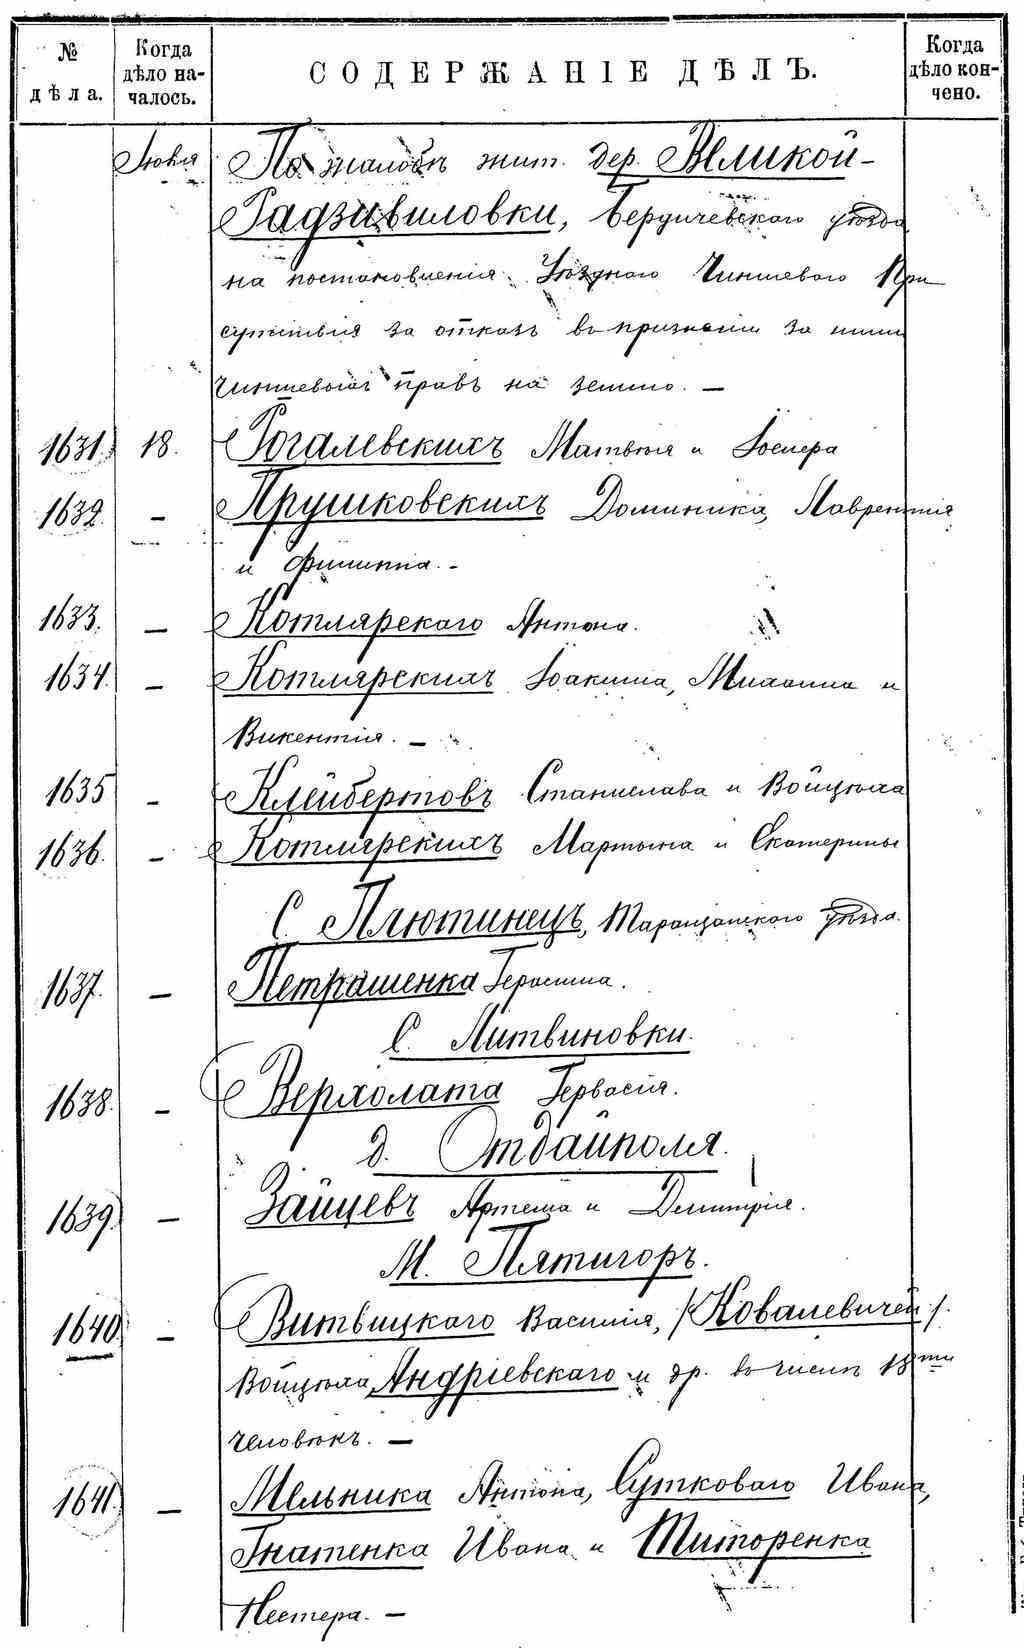 № дѣла.
Когда дѣло на-
чалось.
СОДЕРЖАНІЕ ДѢЛЪ.
Когда дѣло кон-
чено.
Іюля По жалобѣ жит. дер. Великой-
Радзивиловки, Бердичевскаго уѣзда
на постановленія Уѣзднаго Чиншеваго При
сутствія за отказъ въ признаніи за ними
чиншевыхъ правъ на землю. —
1631. 18. Рогалевскихъ Матвѣя и Іосифа
1632 — Прушковскихъ Доминика, Лаврентія
и Филиппа. -
1633. — Котлярскаго Антона.
1634. — Котлярскихъ Іоакима, Михаила и
Викентія. —
1635 — Клейбертовъ Станислава и Войцѣха
1636. — Котлярскихъ Мартына и Екатерины
С. Плютинецъ, Таращанскаго уѣзда.
1637. — Петрашенка Герасима.
С. Литвиновки.
1638. — Верхолата Гервасія.
д. Отдайполя.
1639. — Зайцевъ Артема и Димитрія.
М. Пятигоръ.
1640. — Витвицкаго Василія, /Ковалевичей/.
Войцѣха Андріевскаго и др. въ числѣ 18ти
человѣкъ. —
1641. — Мельника Антона, Сутковаго Ивана,
Гнатенка Ивана и Титоренка
Нестера. —